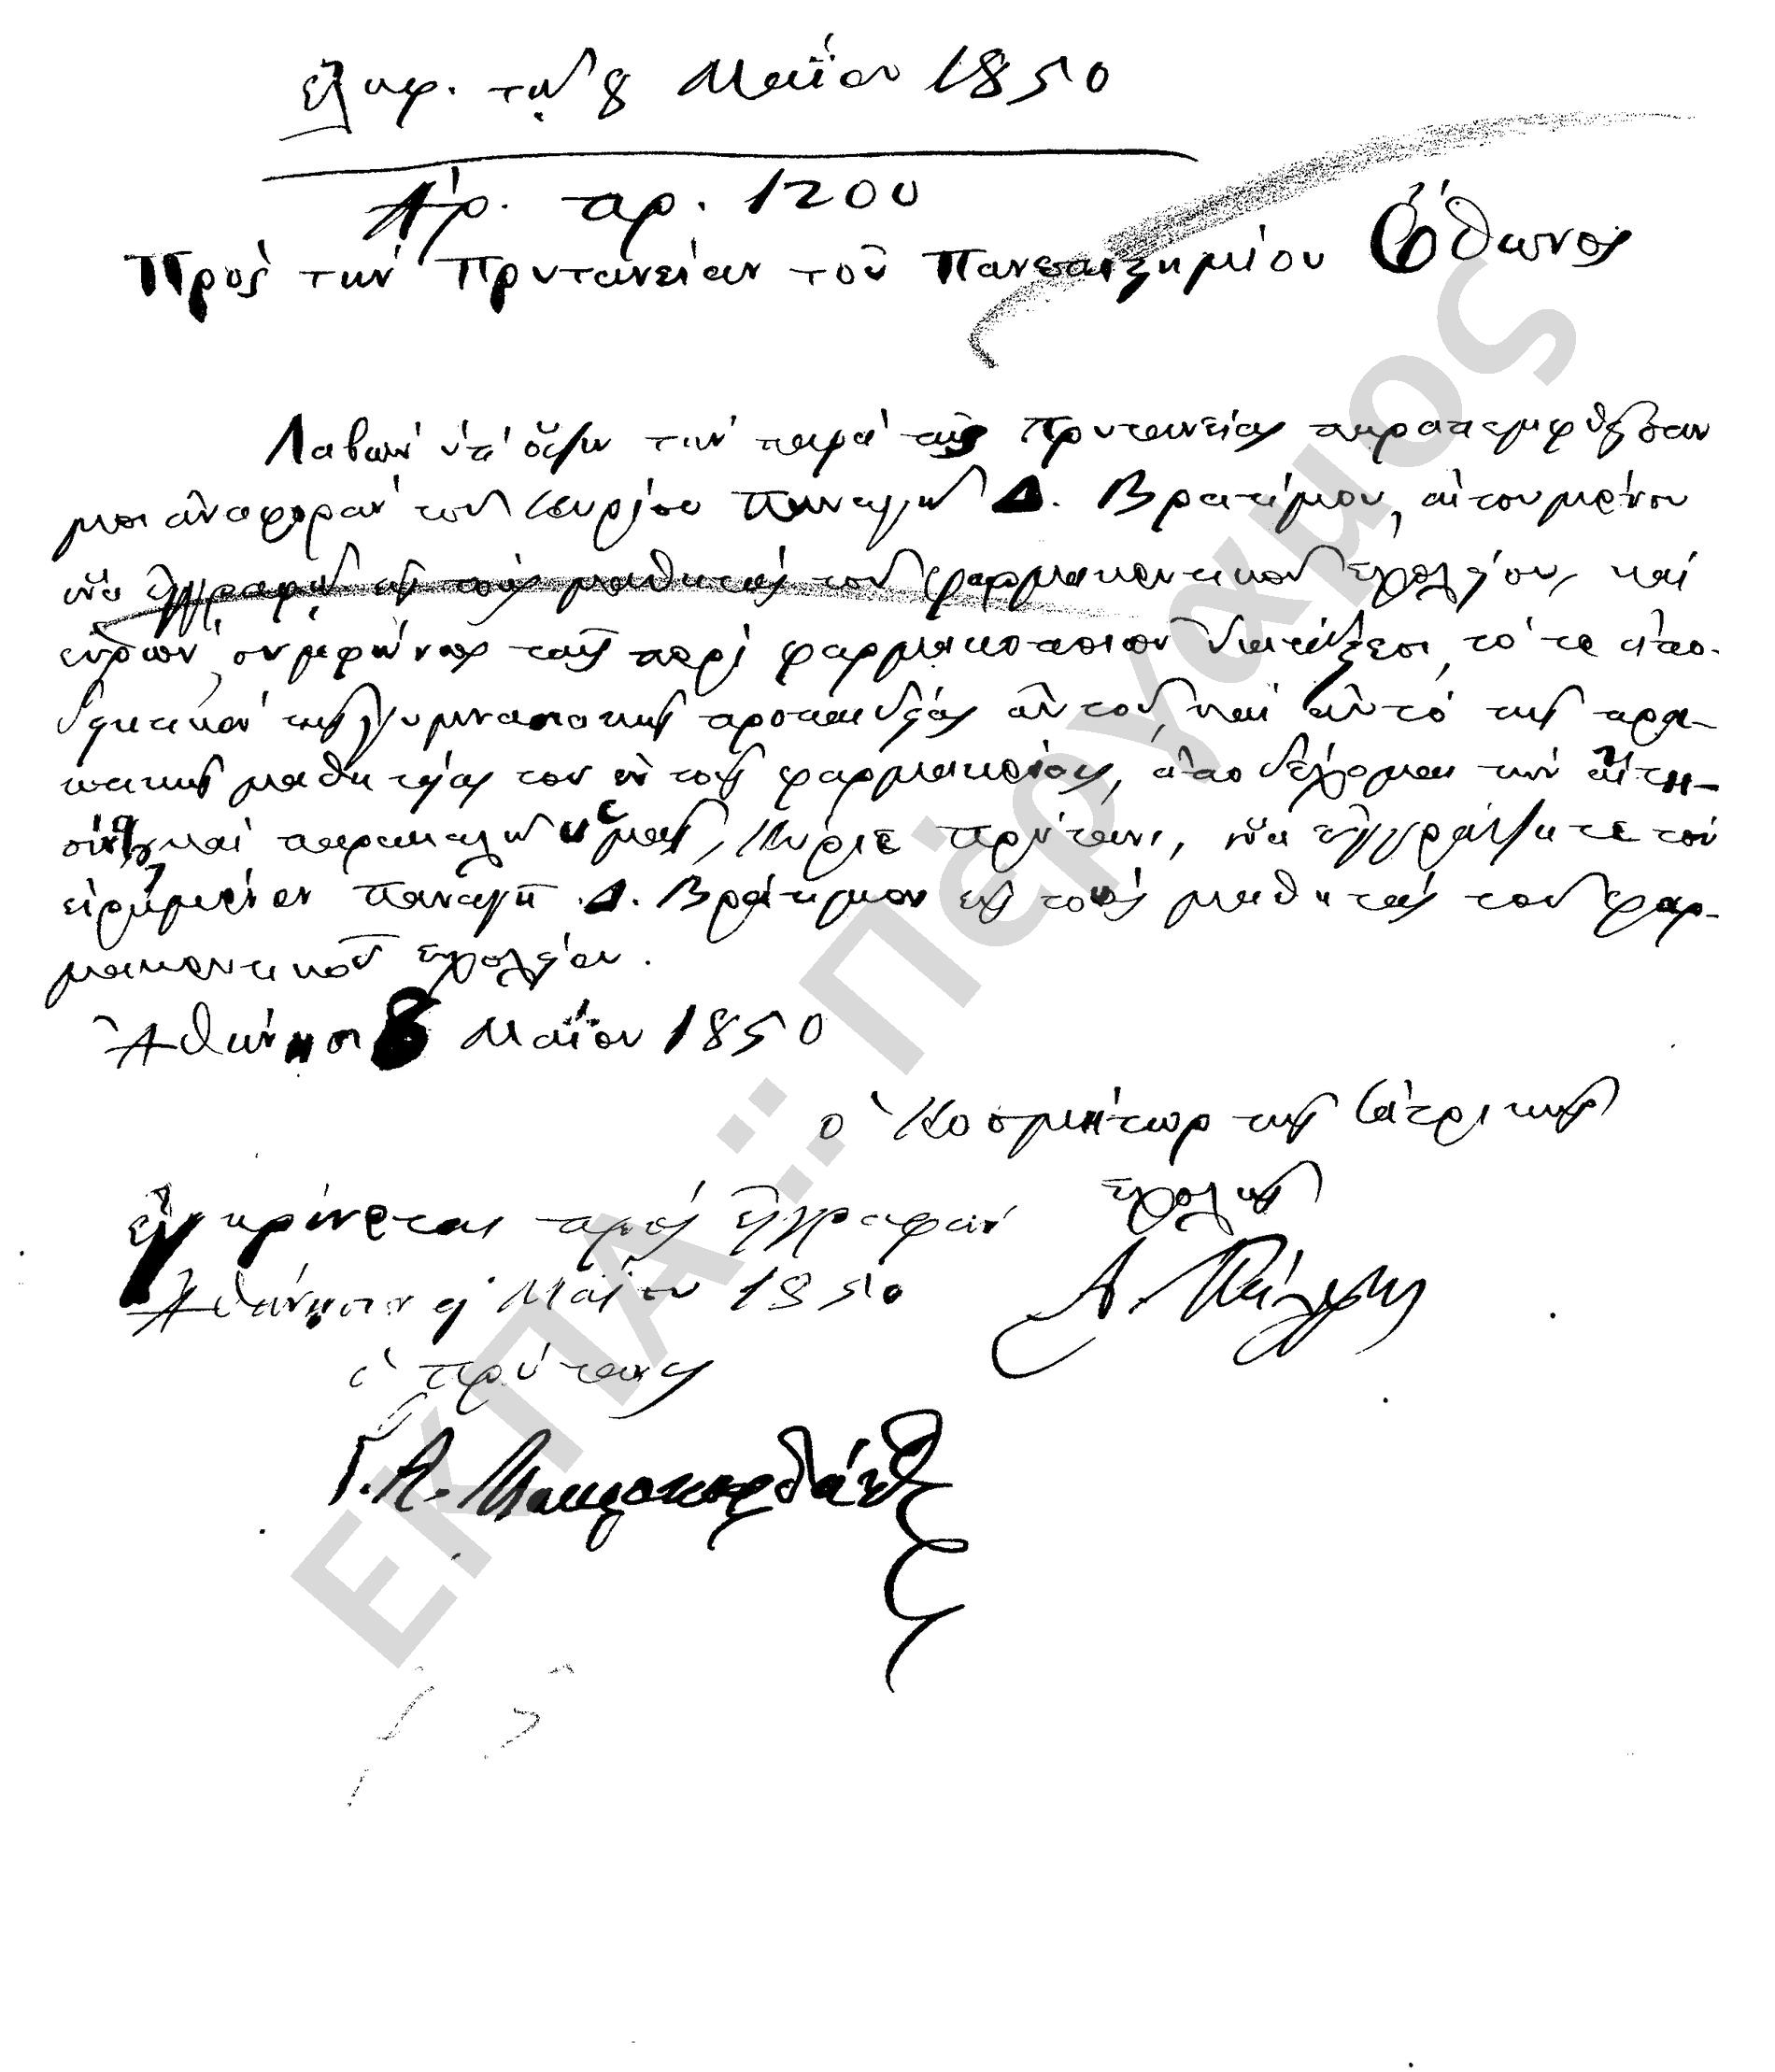 ἐλήφ. τῇ 8 Μαΐου 1850
Ἀρ. πρ. 1200
Πρὸς τὴν Πρυτανείαν τοῦ Πανεπιστημίου Ὄθωνος
Λαβὼν ὑπ' ὄψιν τὴν παρὰ τῆς Πρυτανείας παραπεμφθεῖσαν
μοι ἀναφορὰν τοῦ Κυρίου Παναγῆ Δ. Βρατίμου, αἰτουμένου
νὰ ἐγγραφῇ εἰς τοὺς μαθητὰς τοῦ φαρμακευτικοῦ σχολείου, καὶ
εὑρὼν, συμφώνως ταῖς περὶ φαρμακοποιῶν διατάξεσι, τό τε ἀπο-
δεικτικὸν τῆς γυμνασιακῆς προπαιδείας αὐτοῦ, καὶ αὐτὸ τῆς πρα-
κτικῆς μαθητείας του ἐν τοῖς φαρμακείοις, ἀποδέχομαι τὴν αἴτη-
σίν καὶ παρακαλῶ ὑμᾶς, Κύριε Πρύτανι, νὰ ἐγγράψητε τὸν
εἰρημένον Παναγῆ Δ. Βράτιμον εἰς τοὺς μαθητὰς τοῦ φαρ-
μακευτικοῦ σχολείου.
Ἀθήνησι 8 Μαΐου 1850
ὁ Κοσμήτωρ τῆς Ἰατρικῆς
Σχολῆς
Α. Πάλλης
ἐγκρίνεται πρὸς ἐγγραφήν
Ἀθήνησιν Μαΐου 1850
ὁ πρύτανις
Γ. Α. Μαυροκορδάτος
ΕΚΠΑ :: Πέργαμος